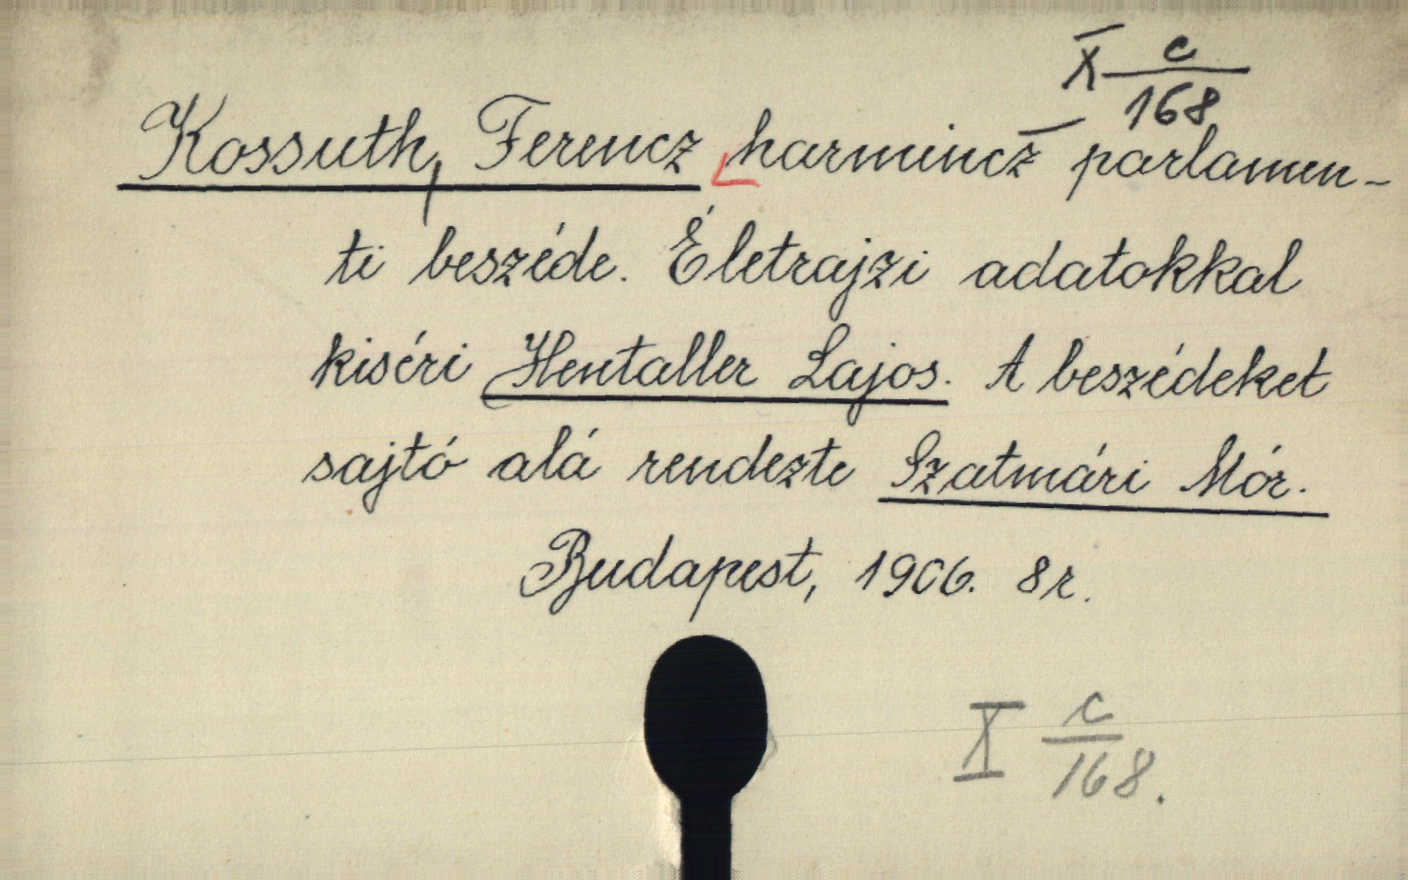 X c/168
Kossuth, Ferencz harmincz parlamen-
ti beszéde. Életrajzi adatokkal
kiséri Hentaller Lajos. A beszédeket
sajtó alá rendezte Szatmári Mór.
Budapest, 1906. 8r.
X c/168.